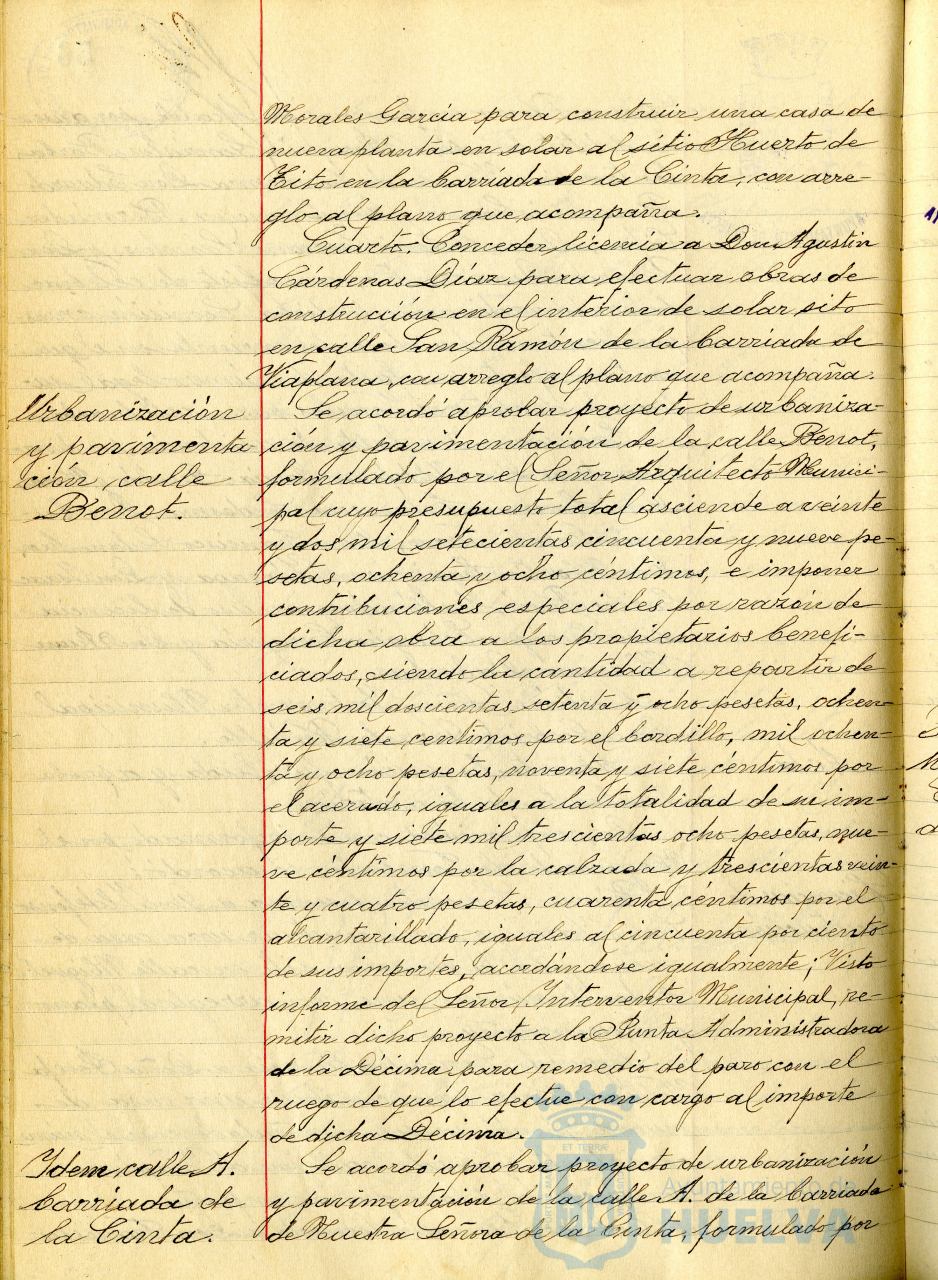 Morales García para construir una casa de
nueva planta en solar al sitio Huerto de
Tito en la barriada de la Cinta, con arre-
glo al plano que acompaña.
Cuarto. Conceder licencia a Don Agustin
Cárdenas Díaz para efectuar obras de
construcción en el interior de solar sito
en calle San Ramón de la barriada de
Viaplana, con arreglo al plano que acompaña.
Urbanización
y pavimenta-
ción calle
Berrot.
Se acordó aprobar proyecto de urbaniza-
ción y pavimentación de la calle Berrot,
formulado por el Señor Arquitecto Munici-
pal cuyo presupuesto total asciende a veinte
y dos mil setecientas cincuenta y nueve pe-
setas, ochenta y ocho céntimos, e imponer
contribuciones especiales por razón de
dicha obra a los propietarios benefi-
ciados, siendo la cantidad a repartir de
seis mil doscientas setenta y ocho pesetas, ochen-
ta y siete centimos por el bordillo, mil ochen-
ta y ocho pesetas, noventa y siete céntimos por
el acerado, iguales a la totalidad de su im-
porte y siete mil trescientas ocho pesetas, nue-
ve céntimos por la calzada y trescientas vein-
te y cuatro pesetas, cuarenta céntimos por el
alcantarillado, iguales al cincuenta por ciento
de sus importes, acordándose igualmente; Visto
informe del Señor Interventor Municipal, re-
mitir dicho proyecto a la Junta Administradora
de la Décima para remedio del paro con el
ruego de que lo efectue con cargo al importe
de dicha Décima.
Idem calle A.
barriada de
la Cinta.
Se acordó aprobar proyecto de urbanización
y pavimentación de la calle A. de la barriada
de Nuestra Señora de la Cinta, formulado por
Ayuntamiento de
HUELVA